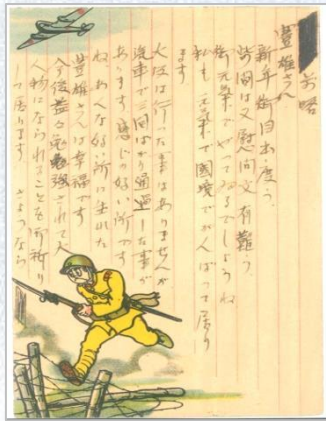 前略
豊雄さん
新年お目出度う
皆同文又慰問文有難う
御元気でやってゐるでしょうね
私も元気で國境でがんばって居り
ます
大阪は行った事はありませんが
汽車で三回ばかり通過した事が
あります 感じの好い所です
ね あんな好い所に生れた
豊雄さんは幸福です
今後益々勉強されて大
人物になられることを御祈り
て居ります さようなら